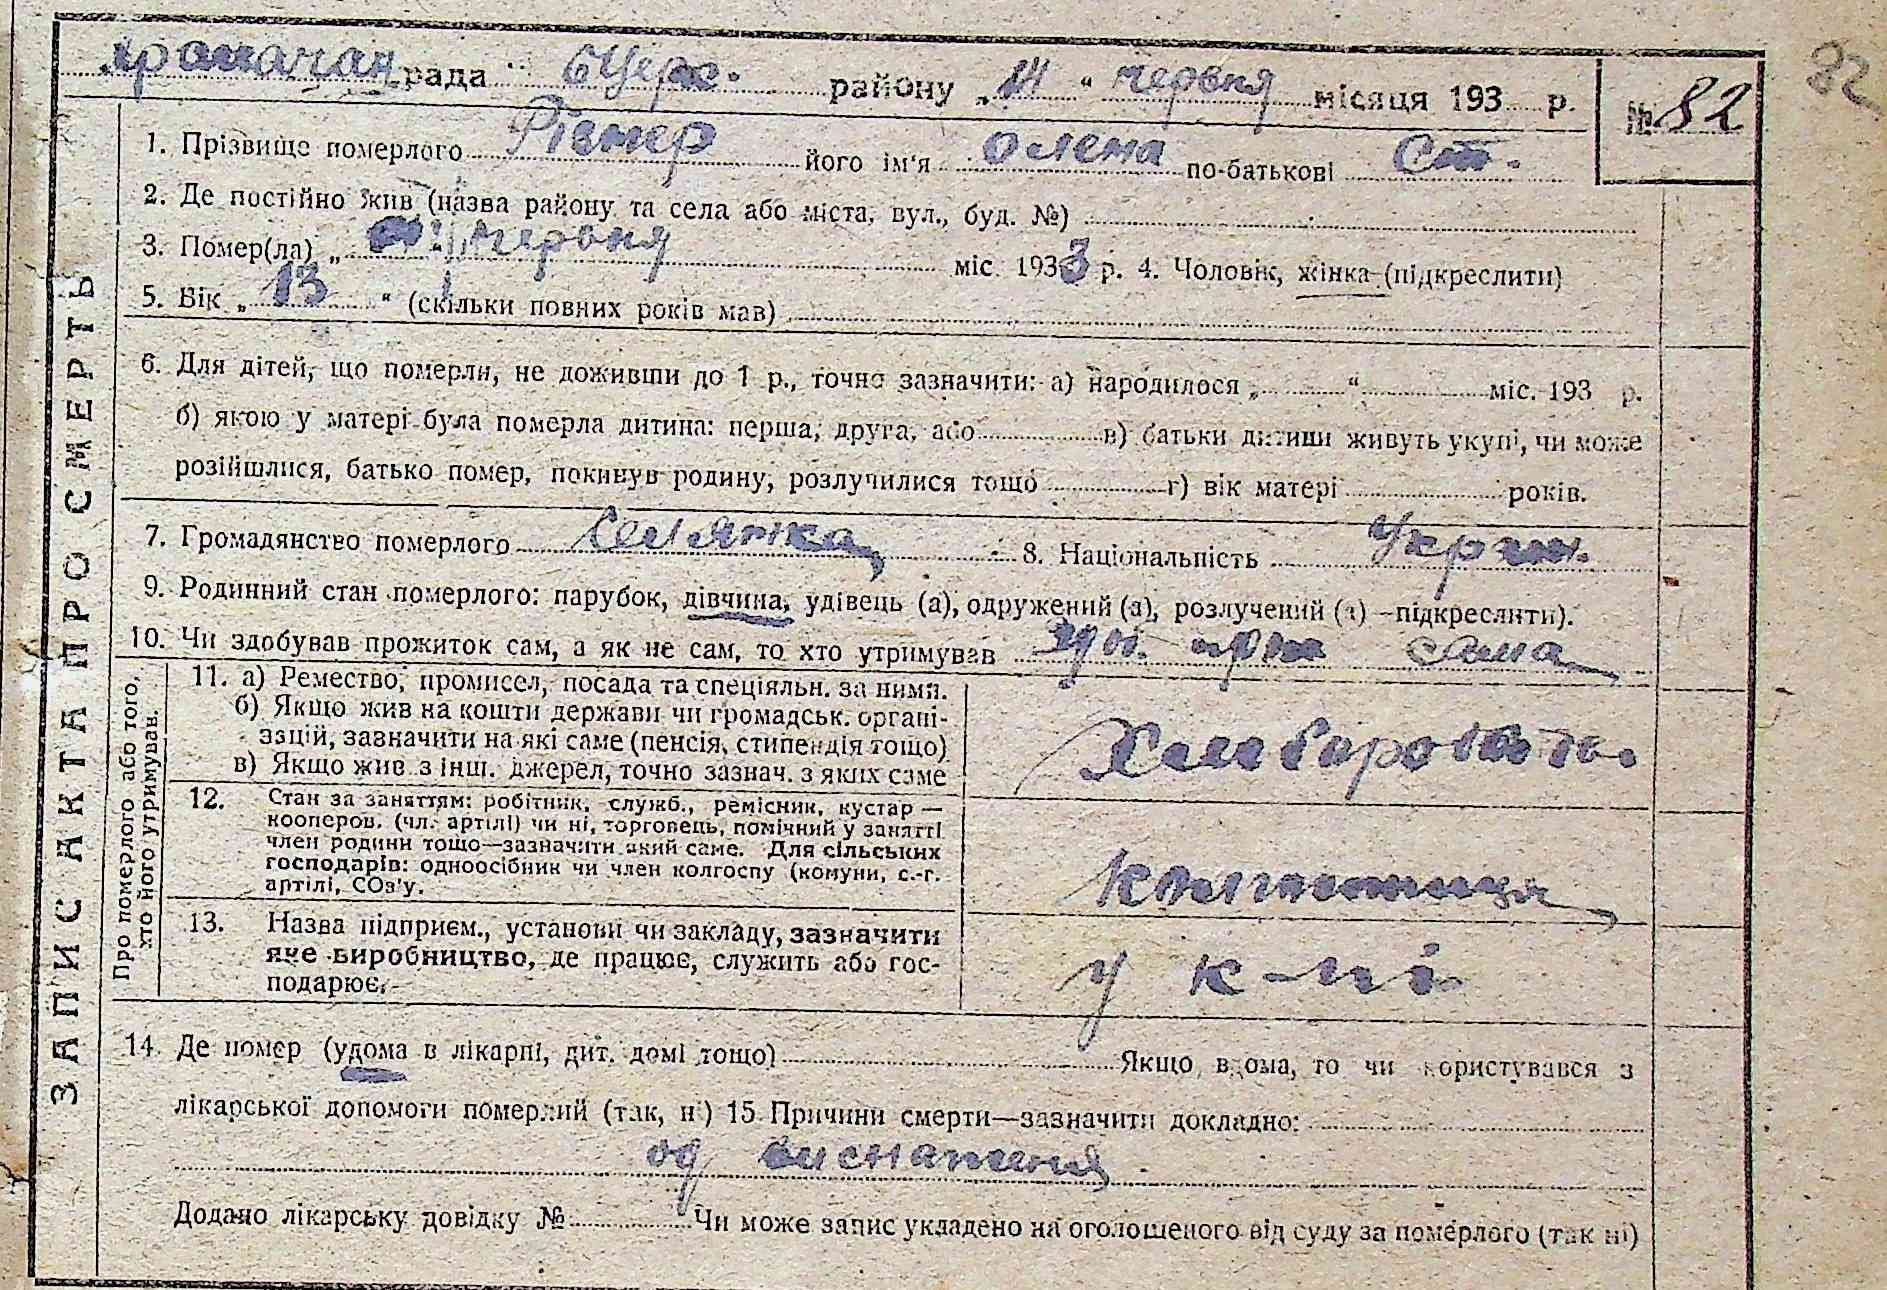 рада БЦерк. району „ “ червня місяця 193 р.
№ 82
82
1. Прізвище померлого Різнер його ім'я Олена по-батькові Ст.
2. Де постійно жив (назва району та села або міста, вул., буд. №)
3. Помер(ла) „ червня міс. 1933 р. 4. Чоловік, жінка (підкреслити)
5. Вік „ 13 “ (скільки повних років мав)
6. Для дітей, що померли, не доживши до 1 р., точно зазначити: а) народилося „ “ міс. 193 р.
б) якою у матері була померла дитина: перша, друга, або в) батьки дитини живуть укупі, чи може
розійшлися, батько помер, покинув родину, розлучилися тощо г) вік матері років.
7. Громадянство померлого селянка 8. Національність Україн.
9. Родинний стан померлого: парубок, дівчина, удівець (а), одружений (а), розлучений (а) —підкреслити).
10. Чи здобував прожиток сам, а як не сам, то хто утримував сама
11. а) Ремество, промисел, посада та спеціяльн. за ними.
б) Якщо жив на кошти держави чи громадськ. органі-
зацій, зазначити на які саме (пенсія, стипендія тощо)
в) Якщо жив з інш. джерел, точно зазнач. з яких саме
Хліборобств.
12. Стан за заняттям: робітник, служб., ремісник, кустар —
кооперов. (чл. артілі) чи ні, торговець, помічний у занятті
член родини тощо—зазначити який саме. Для сільських
господарів: одноосібник чи член колгоспу (комуни, с.-г.
артілі, СОз'у.
колгоспниця
13. Назва підприєм., установи чи закладу, зазначити
яке виробництво, де працює, служить або гос-
подарює.
у к-пі
14. Де помер (удома в лікарні, дит. домі тощо) Якщо вдома, то чи користувався з
лікарської допомоги померлий (так, ні) 15 Причини смерти—зазначити докладно:
од виснаження
Додано лікарську довідку № Чи може запис укладено на оголошеного від суду за померлого (так ні)
ЗАПИС АКТА ПРО СМЕРТЬ
Про померлого або того,
хто його утримував.